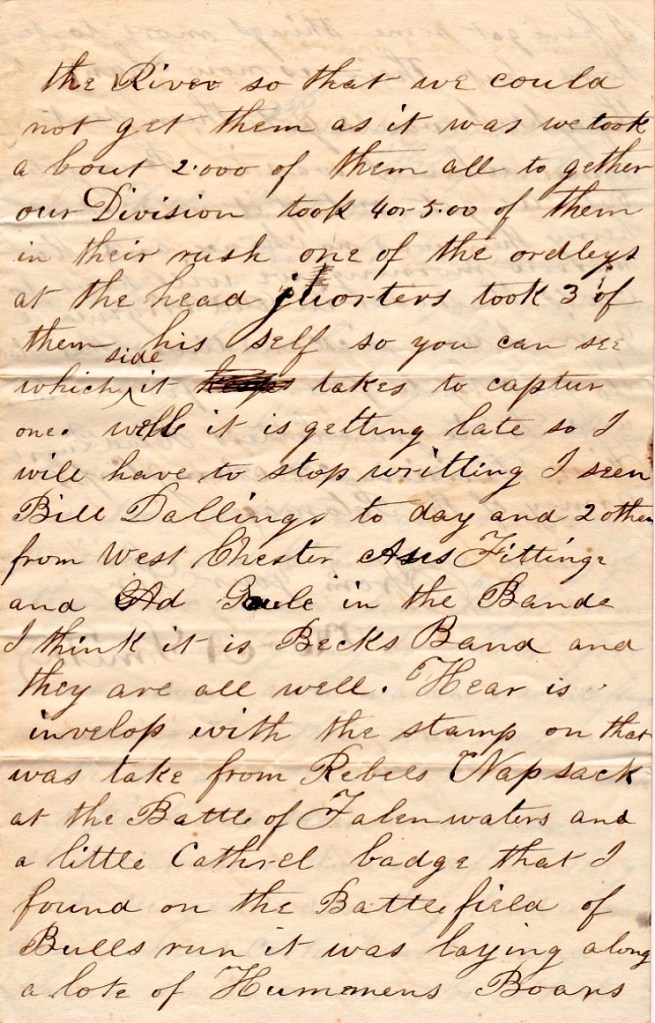 the River so that we could
not get them as it was we took
a bout 2.000 of them all to gether
our Division took 4 or 5.00 of them
in their rush one of the ordleys
at the head quorters took 3 of
them his self so you can see
which side it takes to captur
one. well it is getting late so I
will have to stop writting I seen
Bill Dallings to day and 2 other
from West Chester Fittings
and Ad in the Bande
I think it is Becks Band and
they are all well. Hear is
invelop with the stamp on that
was take from Rebels Napsack
at the Battle of Falen waters and
a little Cathrel badge that I
found on the Battlefield of
Bulls run it was laying along
a lote of Hummens Boans